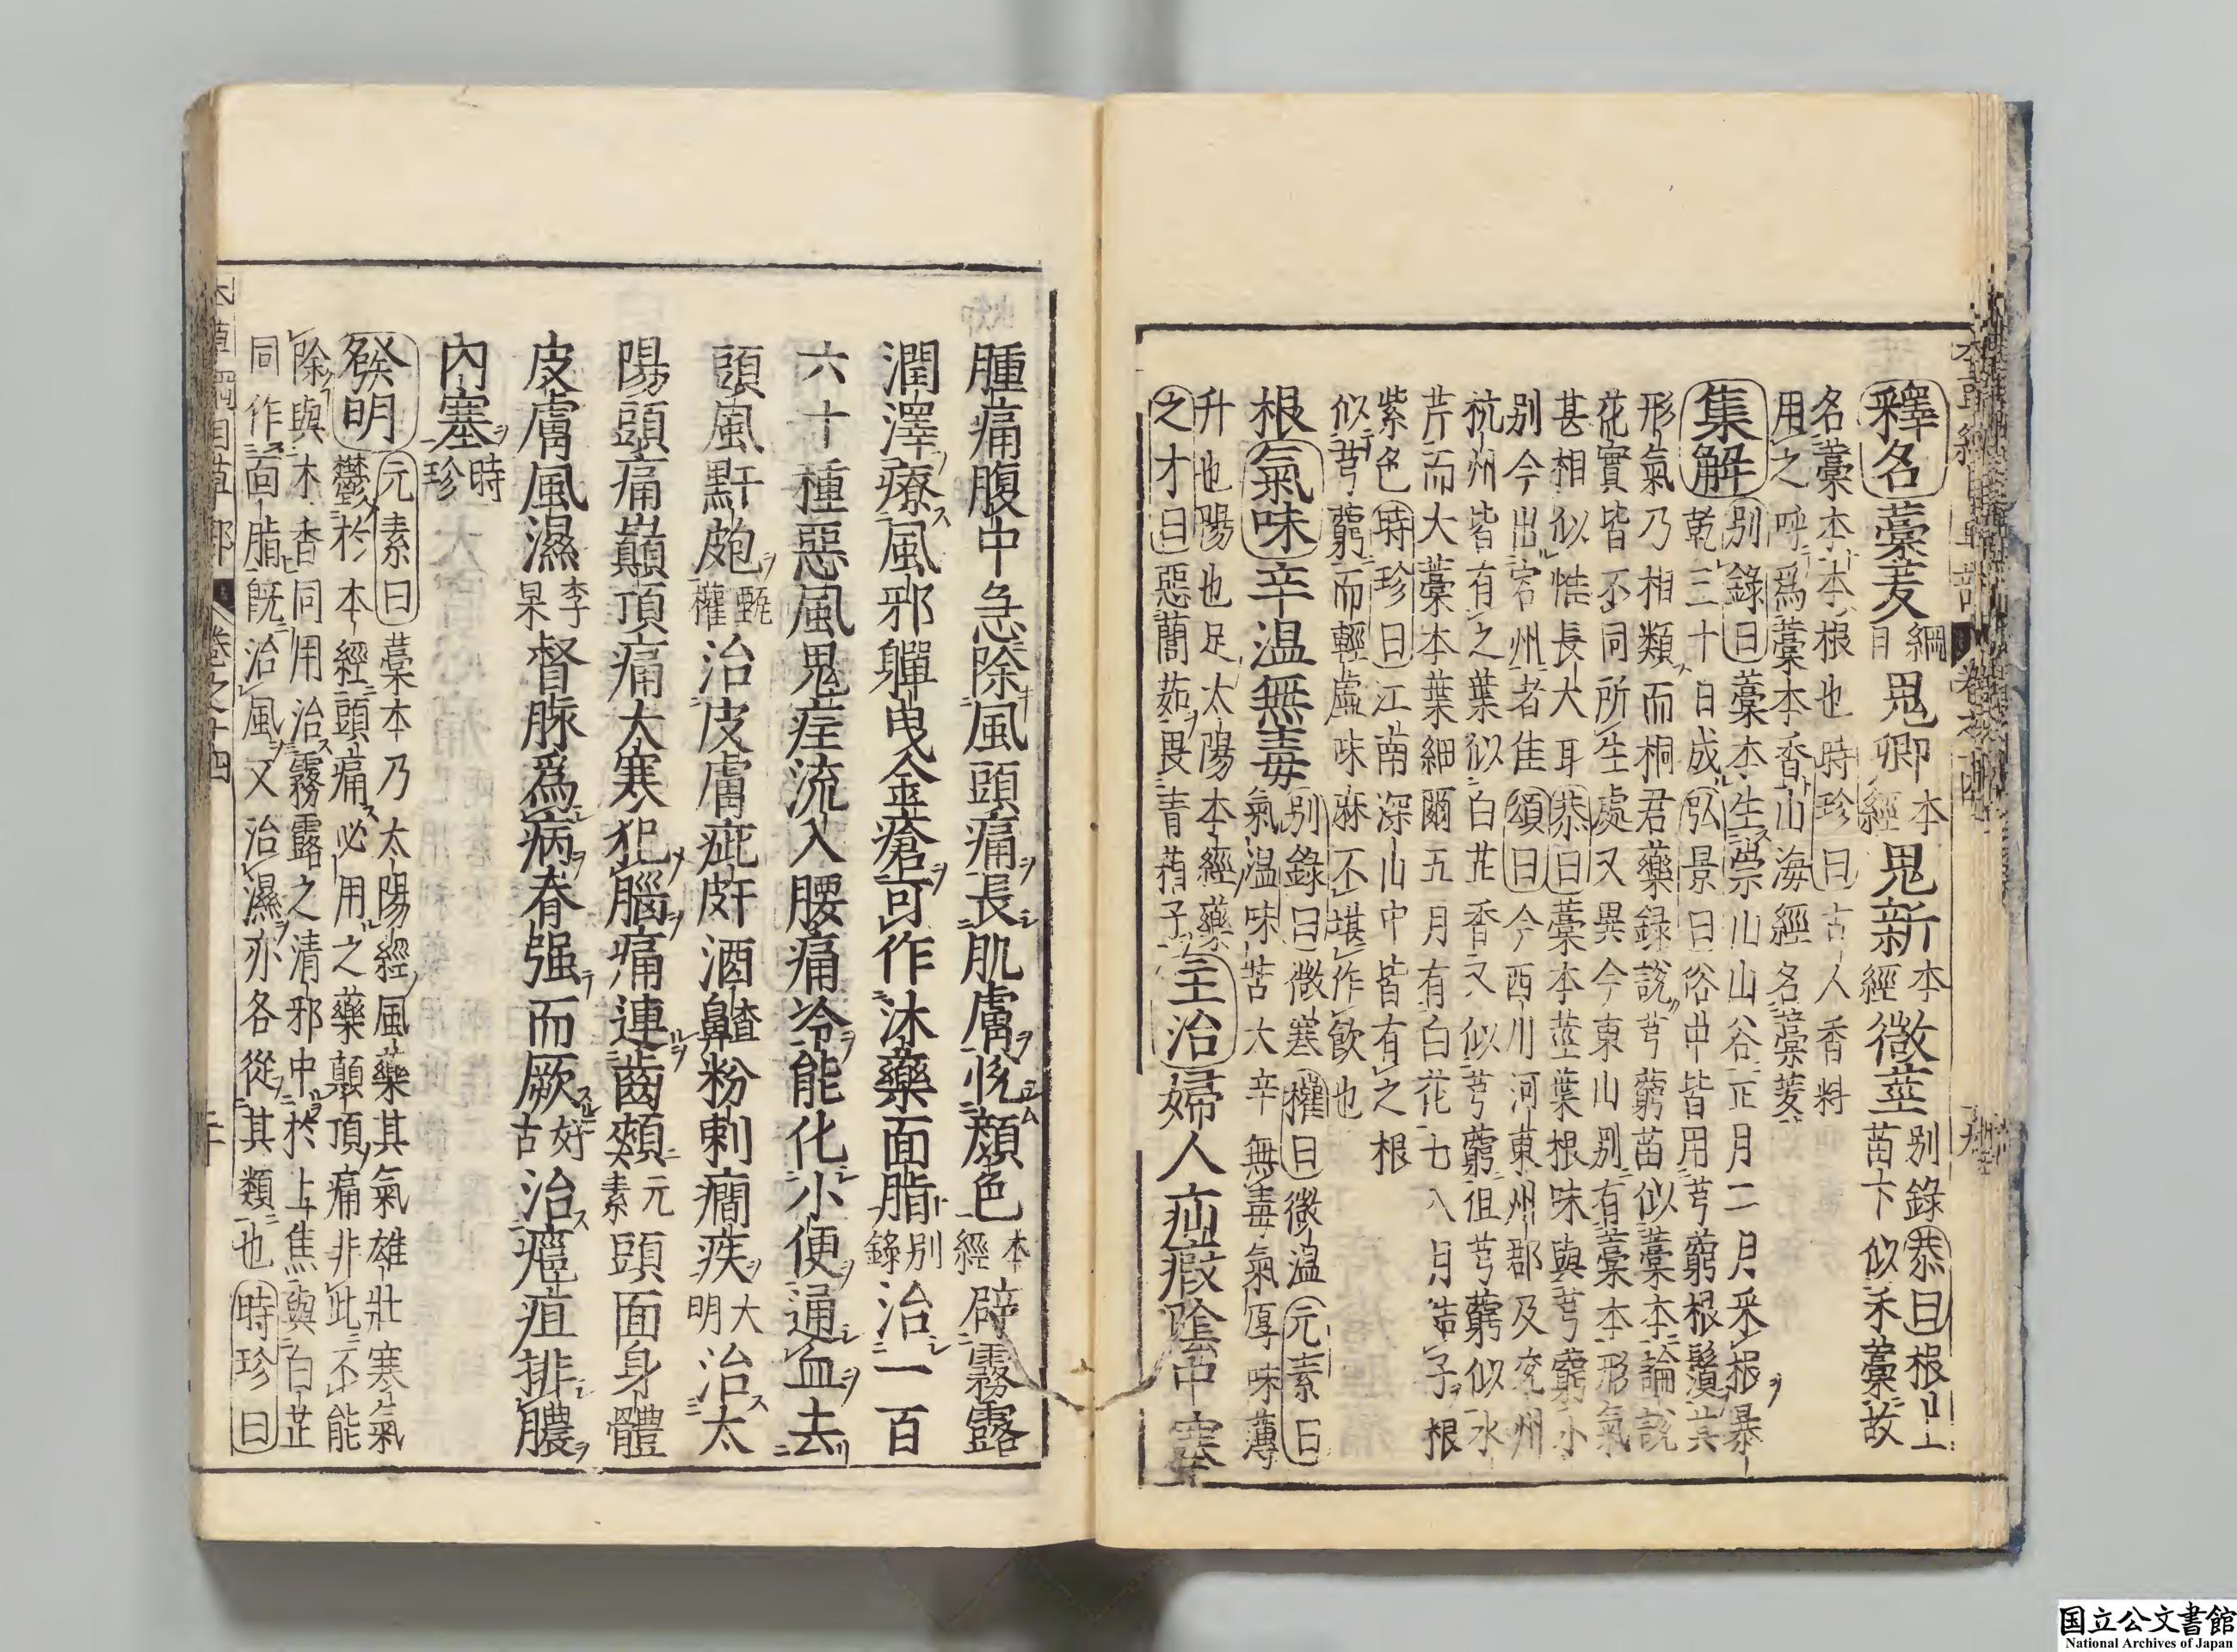 釋名藁茇綱目鬼卿本經鬼新本經微莖別錄恭曰根上
苗下似禾藁故
名藁本本根也時珍曰古人香料
用之呼爲藁本香山海經名藁茇
集解別錄曰藁本生崇山山谷正月二月采根暴
乾三十日成弘景曰俗中皆用芎藭根鬚其
形氣乃相類而桐君藥録說芎藭苗似藁本論說
花實皆不同所生處又異今東山别有藁本形氣
甚相似惟長大耳恭曰藁本莖葉根味與芎藭小
别今出宕州者佳頌曰今西川河東州郡及兖州
杭州皆有之葉似白芷香又似芎藭但芎藭似水
芹而大藁本葉細爾五月有白花七八月結子根
紫色時珍曰江南深山中皆有之根
似芎藭而輕虛味麻不堪作飲也
根氣味辛温無毒别錄曰微寒權曰微温元素曰
氣温味苦大辛無毒氣厚味薄
升也陽也足太陽本經藥
之才曰惡藺茹畏青葙子主治婦人疝瘕陰中寒
腫痛腹中急除風頭痛長肌膚悅顔色本經辟霧露
潤澤療風邪軃曳金瘡可作沐藥面脂别錄治一百
六十種惡風鬼疰流入腰痛冷能化小便通血去
頭風䵟皰甄權治皮膚疵皯酒齄粉刺癎疾大明治太
陽頭痛巔頂痛大寒犯腦痛連齒頰元素頭面身體
皮膚風濕李杲督脉爲病脊强而厥好古治癰疽排膿
內塞時珍
發明元素曰藁本乃太陽經風藥其氣雄壯寒氣
鬱於本經頭痛必用之藥顛頂痛非此不能
除與木香同用治霧露之清邪中於上焦與白芷
同作面脂既治風又治濕亦各從其類也時珍曰
本草綱目草部 卷之十四
国立公文書館
National Archives of Japan